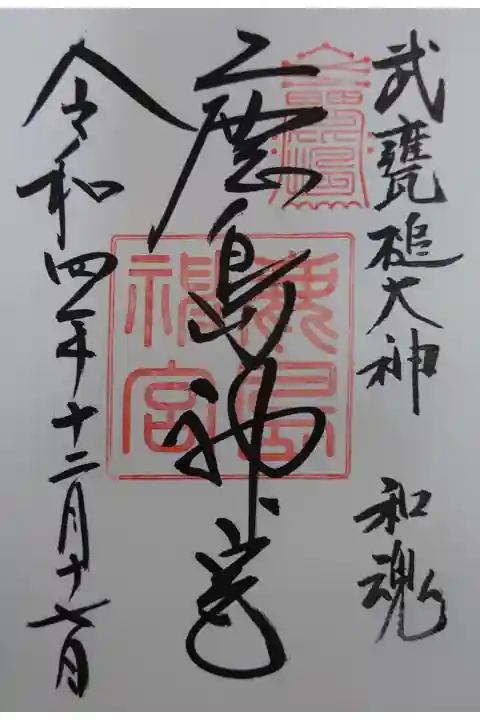 武甕槌大神 和魂
鹿島神宮
鹿島
神宮
令和四年十二月十七日